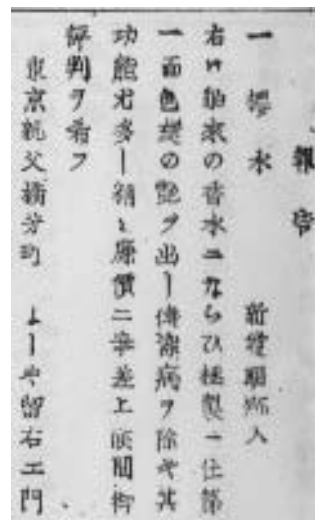 報告
一 櫻水 新 入
右ハ舶来の香水ニならひ極製ニ仕第
一面色の艶ヲ出し傳染病ヲ除キ其
功能尤多し精々廉價ニ奉差上候間御
評判ヲ希フ
東京親父橋芳町 よしや留右エ門